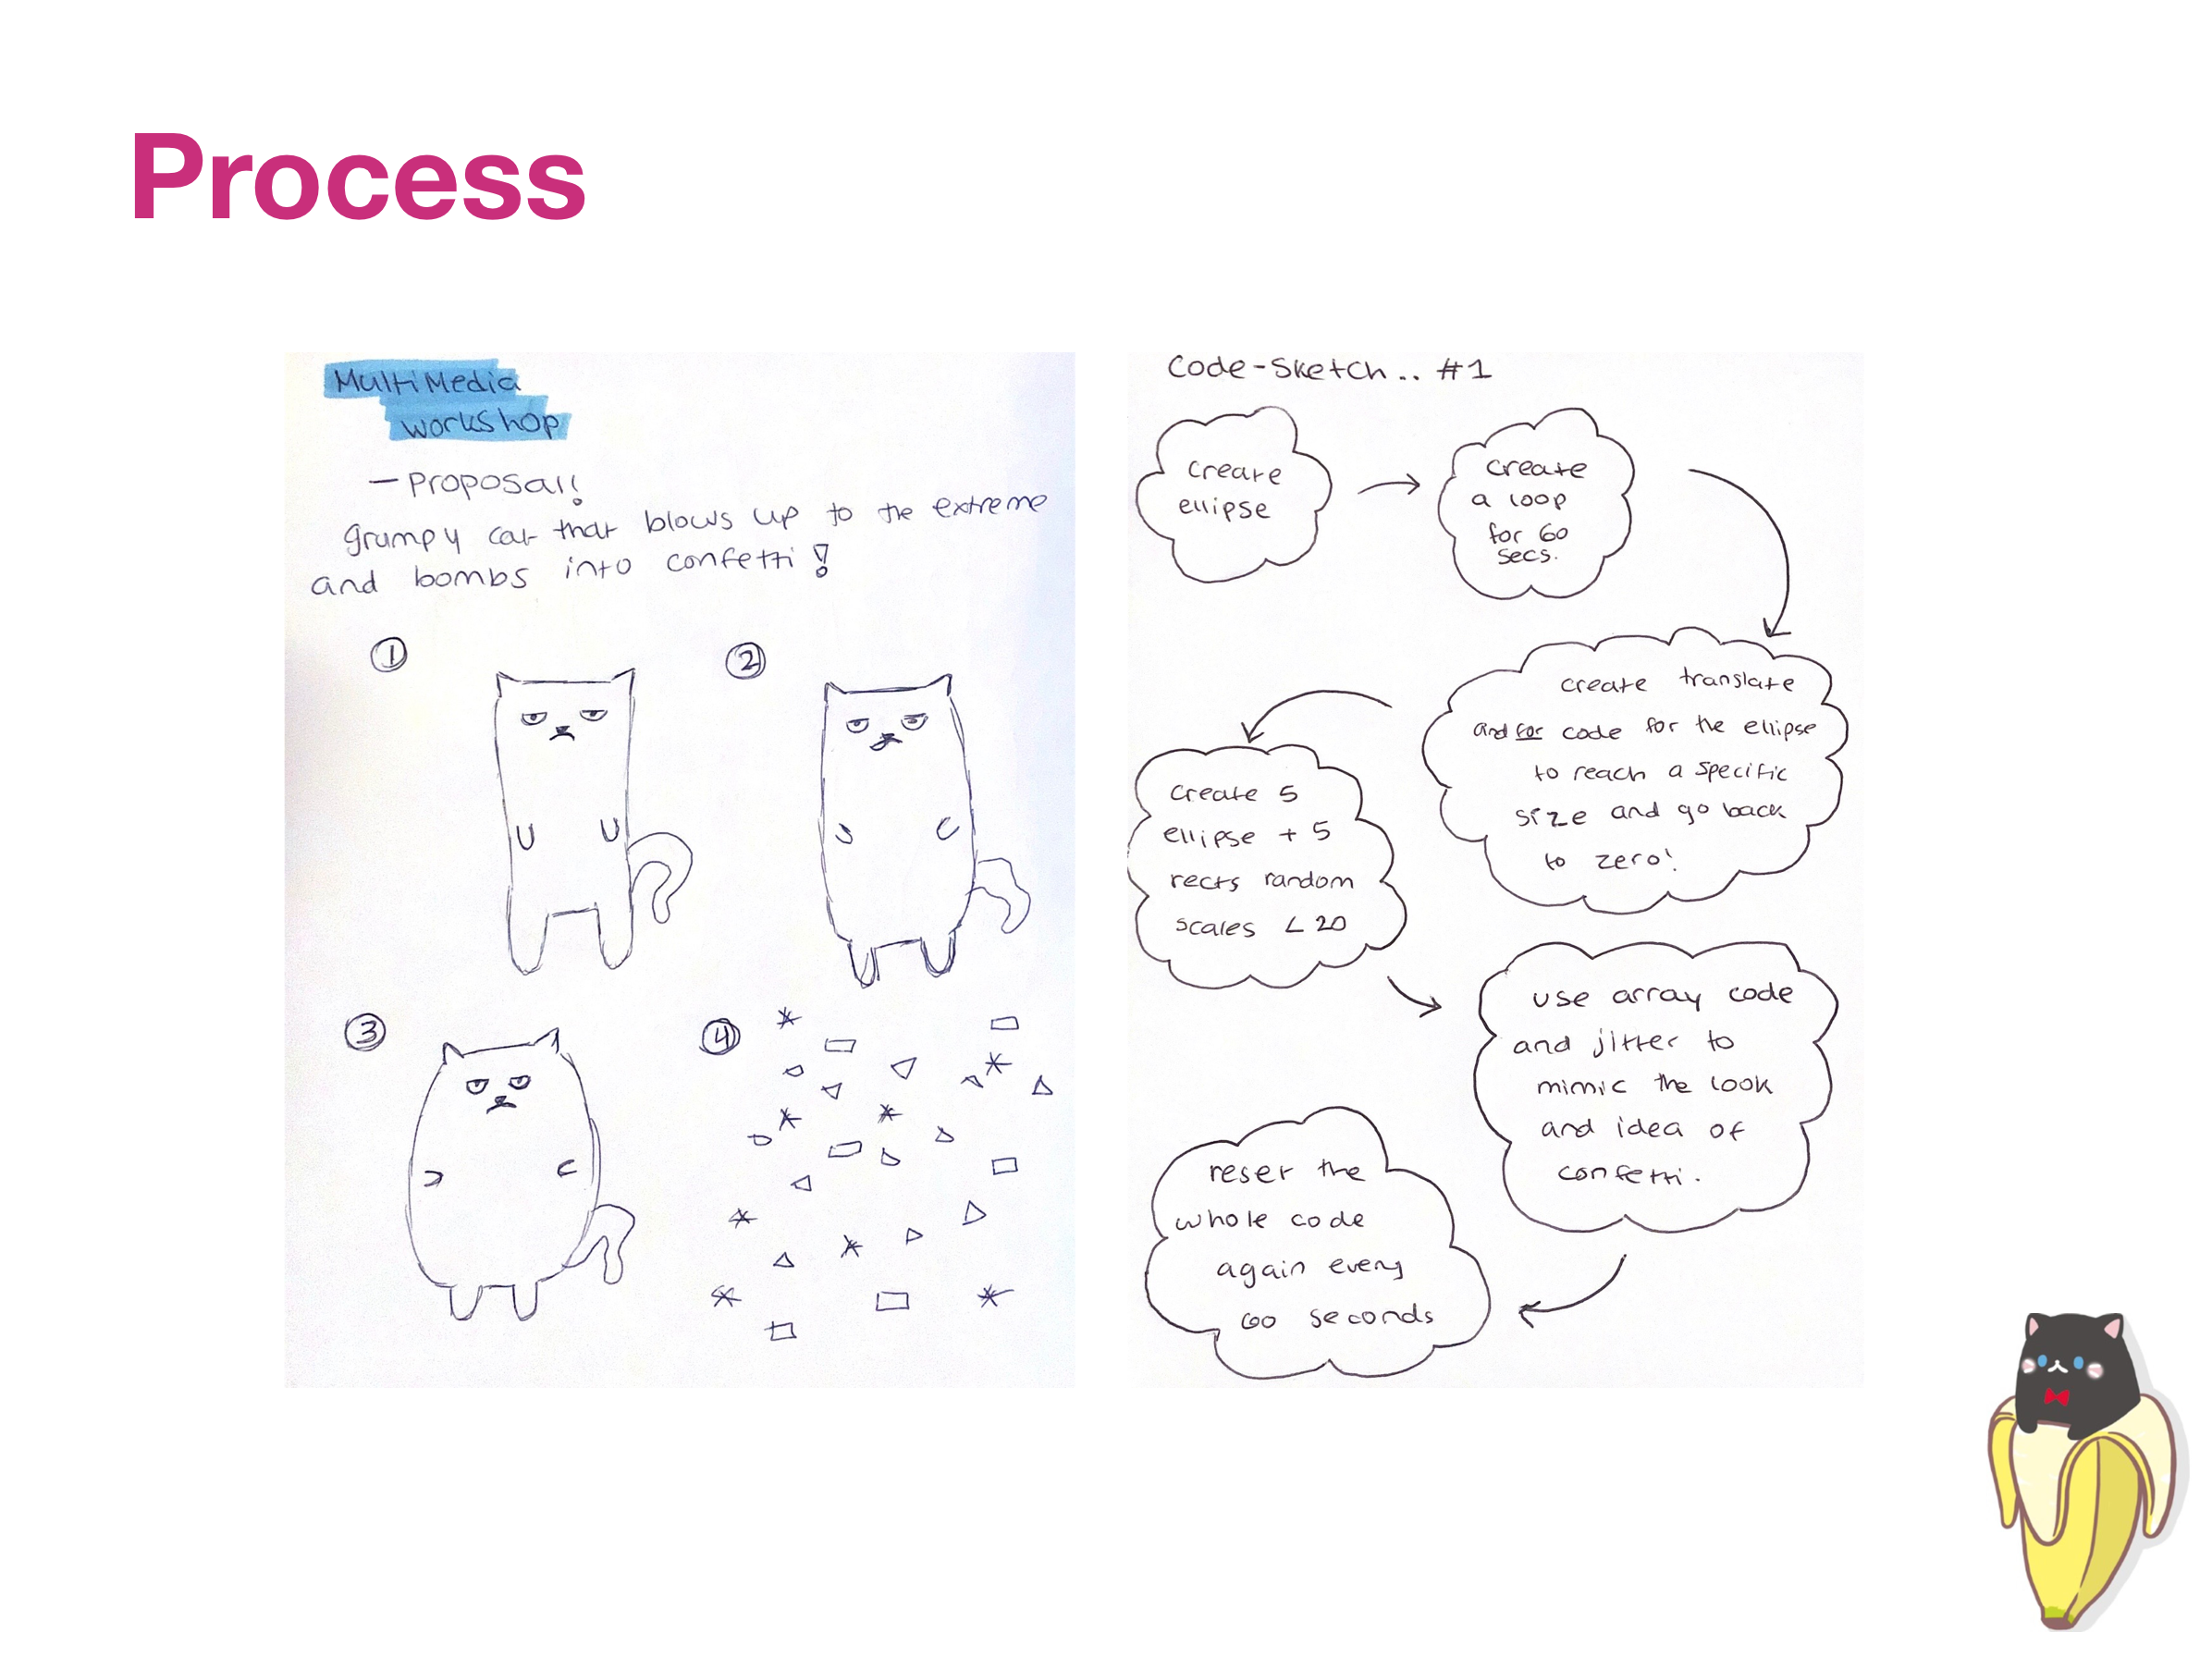 Process
MultiMedia
workshop
- Proposal!
grumpy cat that blows up to the extreme
and bombs into confetti!
1
2
3
4
Code-Sketch.. #1
create
ellipse
create
a loop
for 60
secs.
create translate
and for code for the ellipse
to reach a specific
size and go back
to zero!
create 5
ellipse + 5
rects random
scales < 20
use array code
and jitter to
mimic the look
and idea of
confetti.
reset the
whole code
again every
60 seconds